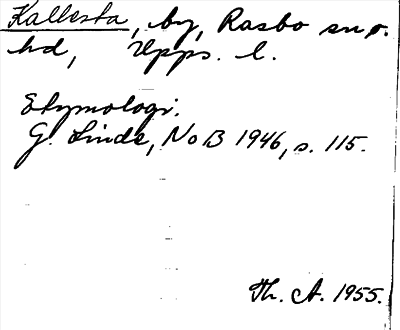 Kallesta, by, Rasbo sn o.
hd, Upps. l.
Etymologi.
G. Linde, NoB 1946, s. 115.
Th. A. 1955.